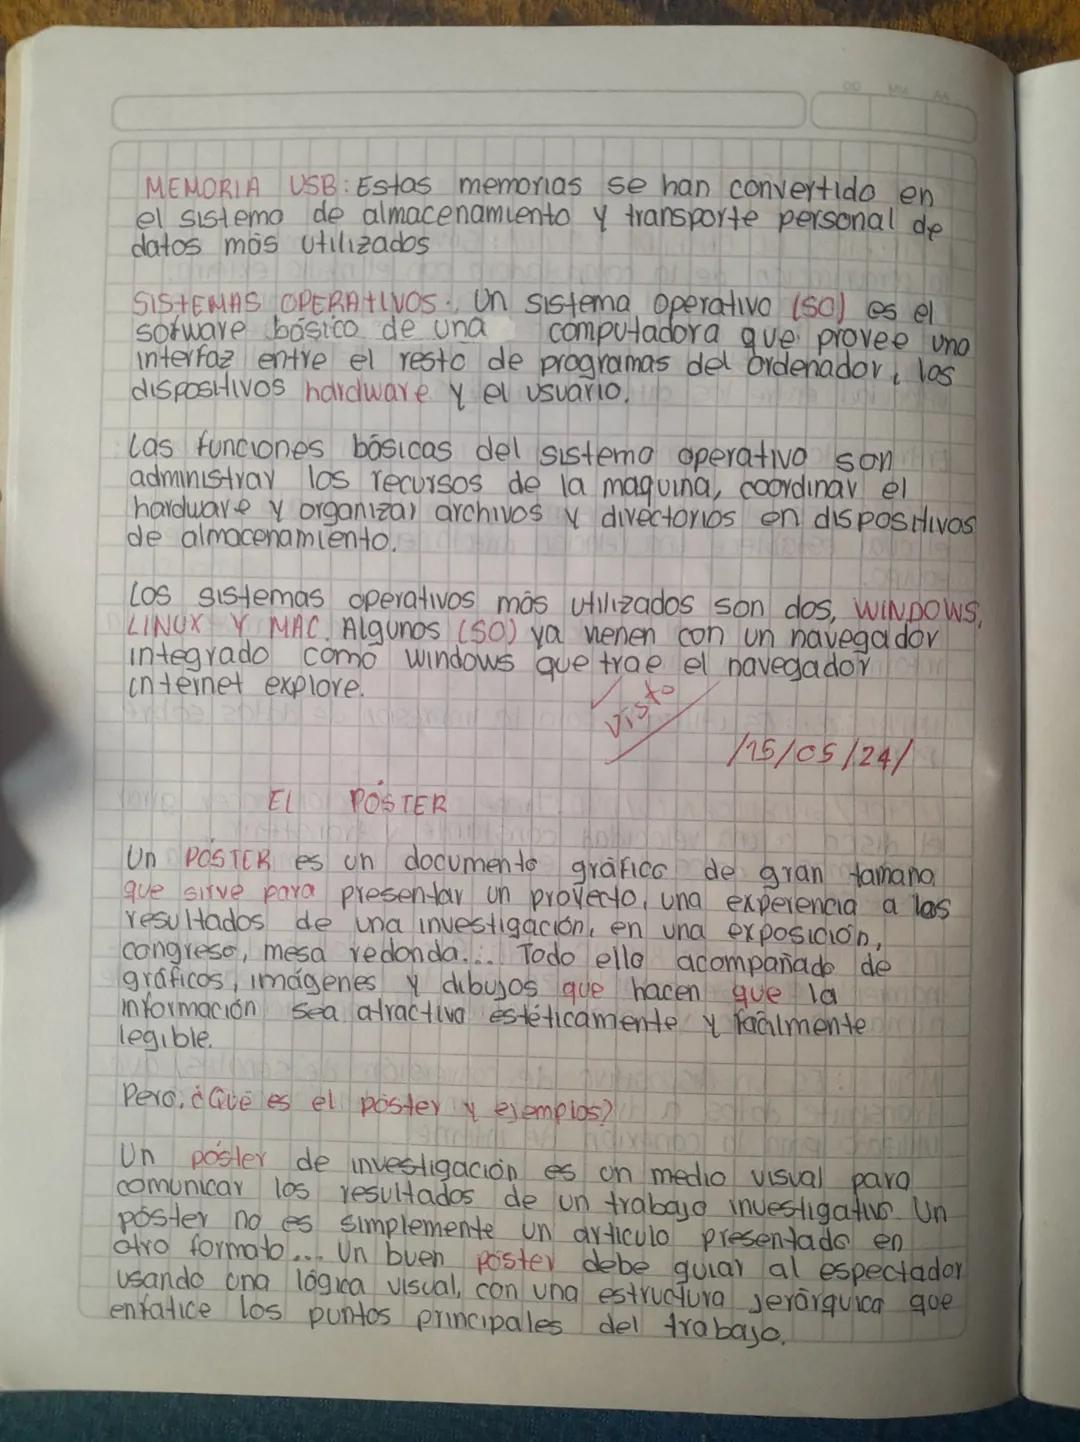 MEMORIA USB: Estas memorias se han convertido en
el sistema de almacenamiento y transporte personal de
datos más utilizados
SISTEMAS OPERATIVOS. Un sistema operativo (SO) es el
sofware básico de una computadora que provee una
interfaz entre el resto de programas del ordenador, los
dispositivos hardware y el usuario.
Las funciones básicas del sistema operativo son
administrar los recursos de la maquina, coordinar el
hardware y organizar archivos y directorios en dispositivos
de almacenamiento.
Los sistemas operativos más utilizados son dos, WINDOWS,
LINUX Y MAC. Algunos (SO) ya vienen con un navegador
integrado como windows que trae el navegador
internet explore.
Visto
/15/05/24/
El PÓSTER
Un PÓSTER es un documento gráfico de gran tamaño
que sirve para presentar un proyecto, una experencia a las
resultados de una investigación, en una exposición,
congreso, mesa redonda... Todo ello acompañado de
gráficos, imágenes y dibujos que hacen que la
información sea atractiva estéticamente y facilmente
legible.
Pero, ¿Qué es el póster y ejemplos?
Un póster de investigación es un medio visual para
comunicar los resultados de un trabajo investigativo. Un
póster no es simplemente un articulo presentado en
otro formato... Un buen póster debe guiar al espectador
usando una lógica visual, con una estructura jerárquica que
enfatice los puntos principales del trabajo.